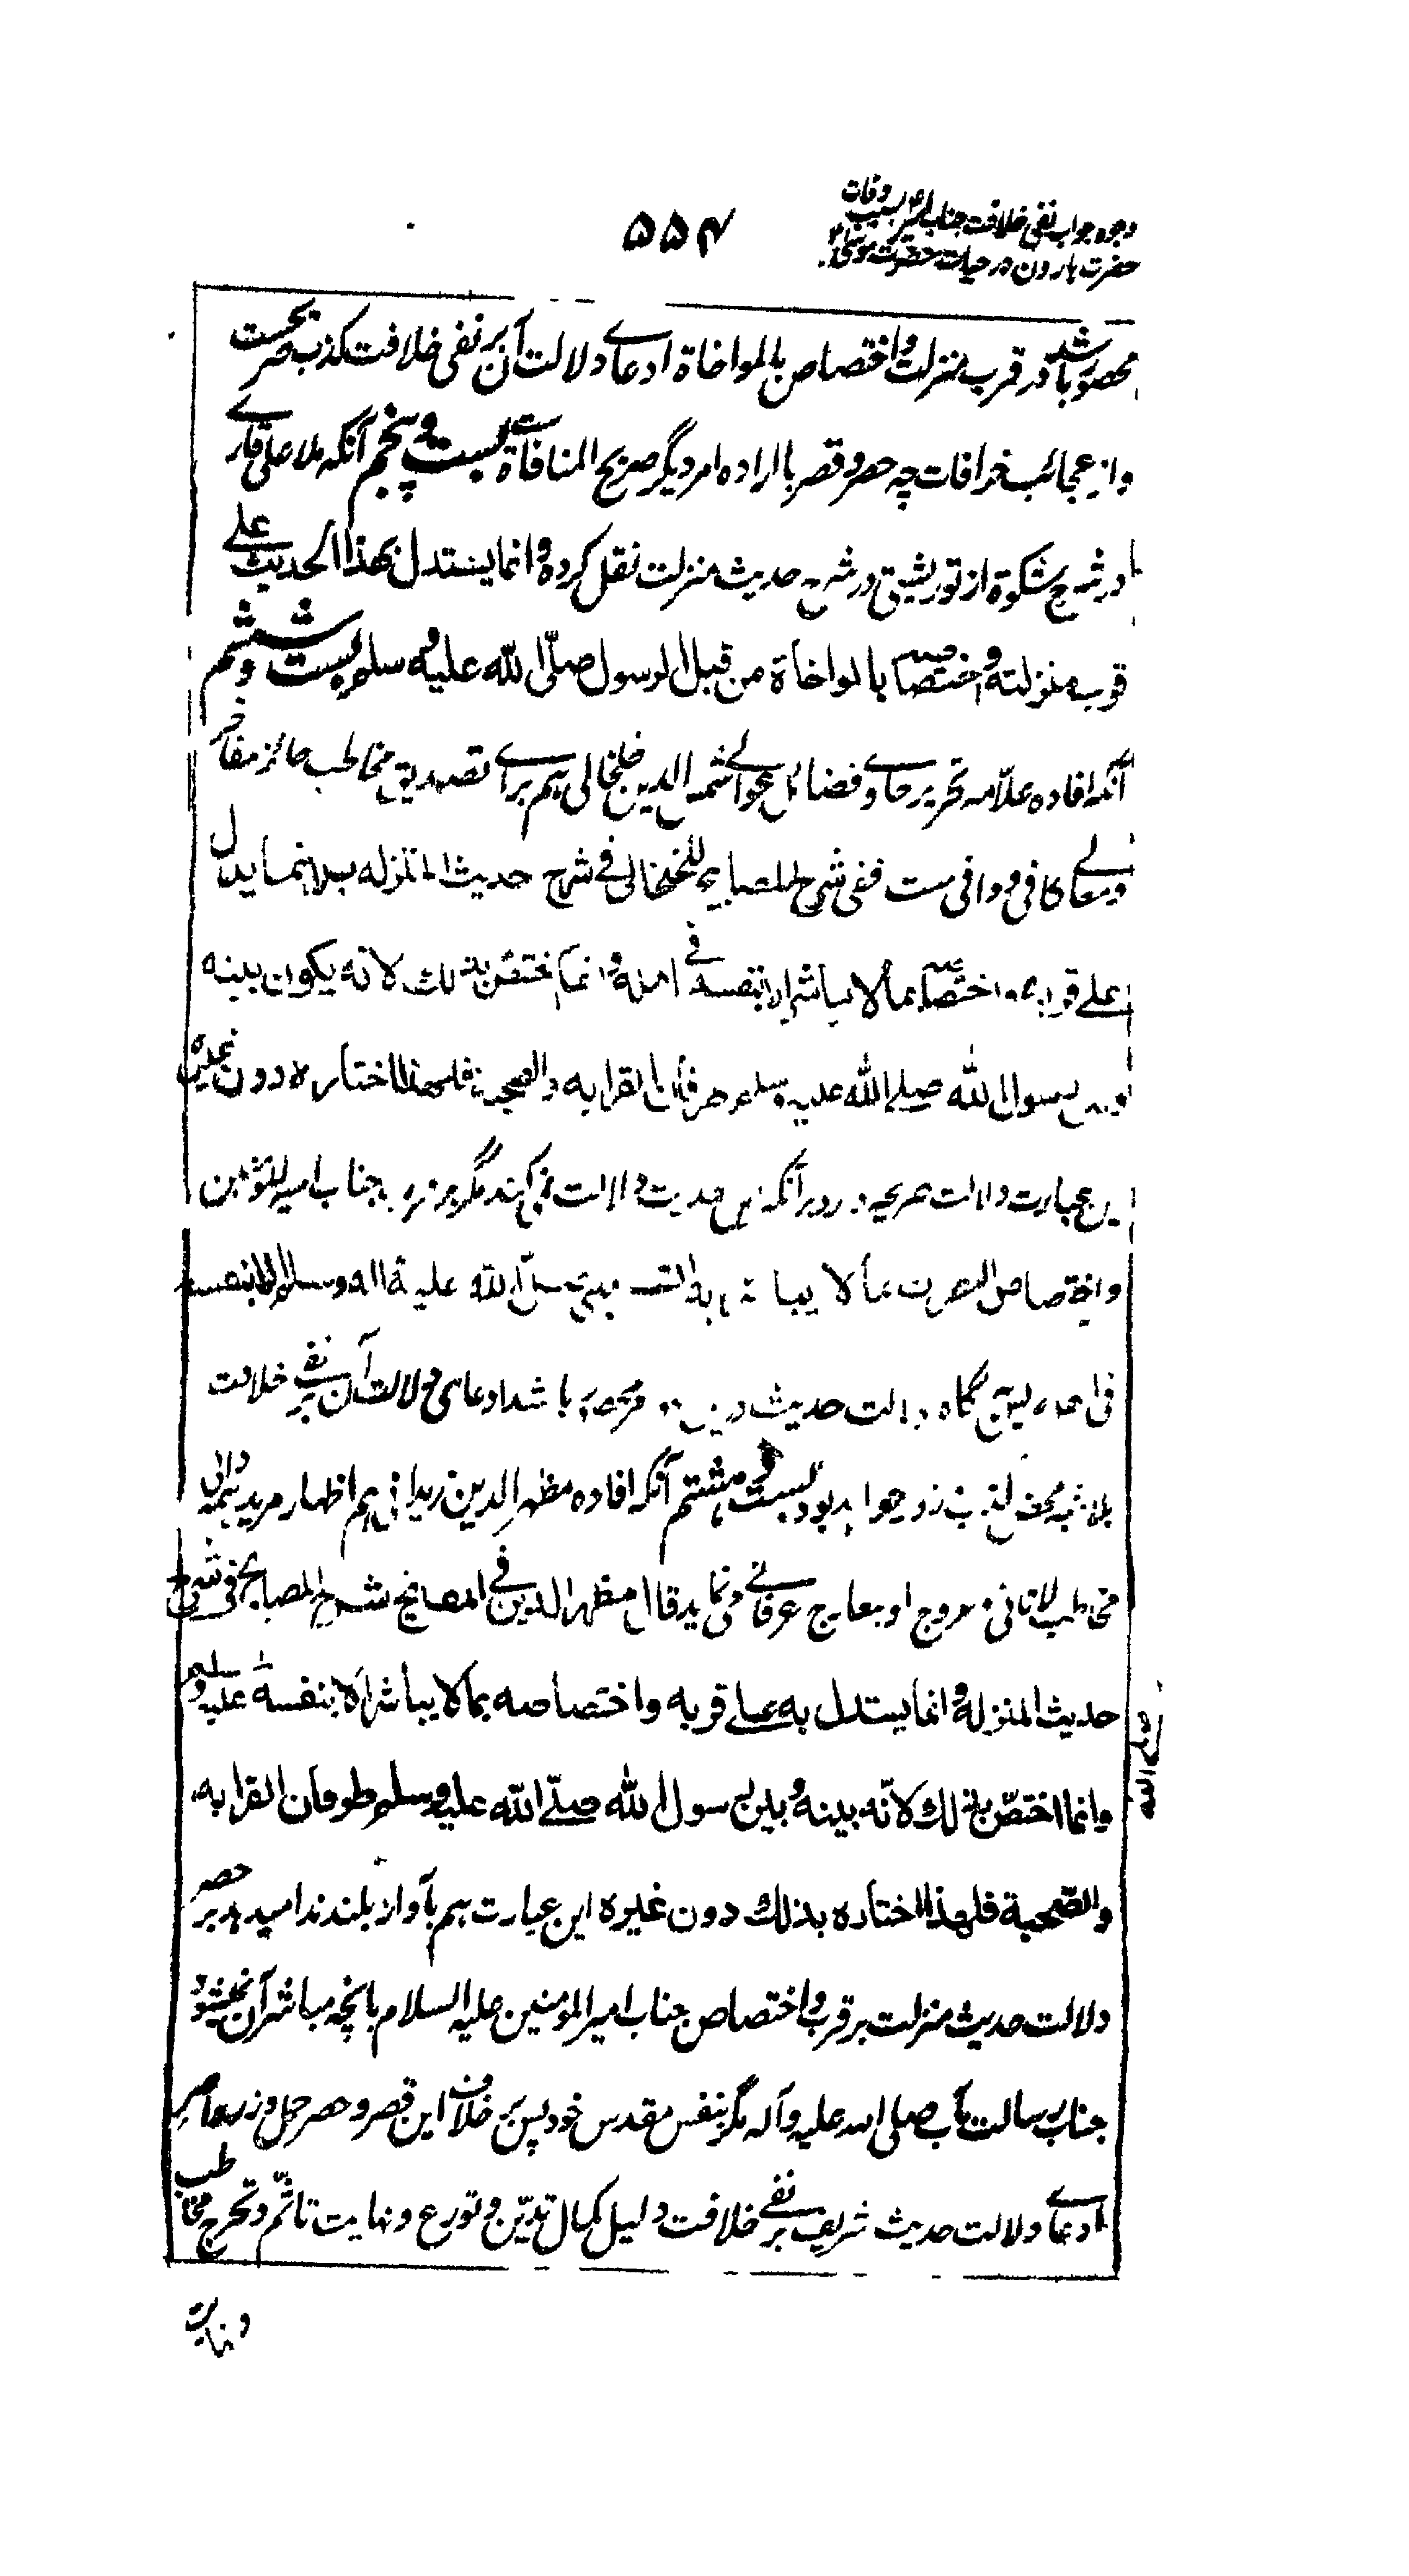 وجوه جواب نفی خلافت جناب امیرؑ بسبب وفات
حضرت هارون در حیات حضرت موسیؑ
۵۵۴
محصور باشد در قرب منزلت و اختصاص بالمواخاة ادعای دلالت آن بر نفی خلافت کذب صریحست
و از عجائب خرافات چه حصر و قصر با اراده امر دیگر صریح المنافاة ست بست و پنجم آنکه ملا علی قاری
در شرح مشکوة از تورپشتی در شرح حدیث منزلت نقل کرده و انما یستدل بهذا الحدیث علی
قرب منزلته و اختصاصه بالمواخاة من قبل الرسول صلّی الله علیه و سلم بست و ششم
آنکه افاده علّامه نحریر حاوی فضائل عوالی شمس الدین خلخالی هم برای تصدیق مخاطب حائز مفاخر
و معالی کافی و وافی ست ففی شرح المصابیح للخلخالی فی شرح حدیث المنزله یدل
علی قربه و اختصاصه بما لا یباشر الا بنفسه فی و انما اختص بذلک لانه یکون بینه
و بین رسول الله صلی الله علیه وسلم القرابه و الصحبة فلهذا اختاره دون غیره
این عبارت دلالت صریحه دارد بر آنکه این حدیث دلالت نمی‌کند مگر بر قرب جناب امیر المؤمنین
و اختصاص آنحضرت بما لا یباشره صلّی الله علیه و اله وسلم الا بنفسه
پس هرگاه دلالت حدیث درین محصور باشد ادعای دلالت آن بر نفی خلافت
کذب و خواهد بود بست و هشتم آنکه افاده مظهر الدین زیدانی هم اظهار مرید همه دانی
مخاطب لاثانی و عروج او بمعارج عرفانی می نماید قال مظهر الدین فی المفاتیح شرح المصابیح فی شرح
حدیث المنزله و انما یستدل به علی قربه و اختصاصه بما لا یباشر الا بنفسه علیه و سلم
و انما اختصّ بذلک لانّه بینه و بین رسول الله صلّی الله علیه وسلم طرفان القرابه
و الصّحبة فلهذا اختاره بذلک دون غیره این عبارت هم بآواز بلند ندا میدهد بر حصر
دلالت حدیث منزلت بر قرب و اختصاص جناب امیر المومنین علیه السلام بانچه مباشر آن نمیشود
جناب رسالت مآب صلی الله علیه و آله مگر بنفس مقدس خود پس بر خلاف این قصر و حصر
ادعای دلالت حدیث شریف بر نفی خلافت دلیل کمال تدیّن و تورع و نهایت تاثّم و تحرج مخاطب